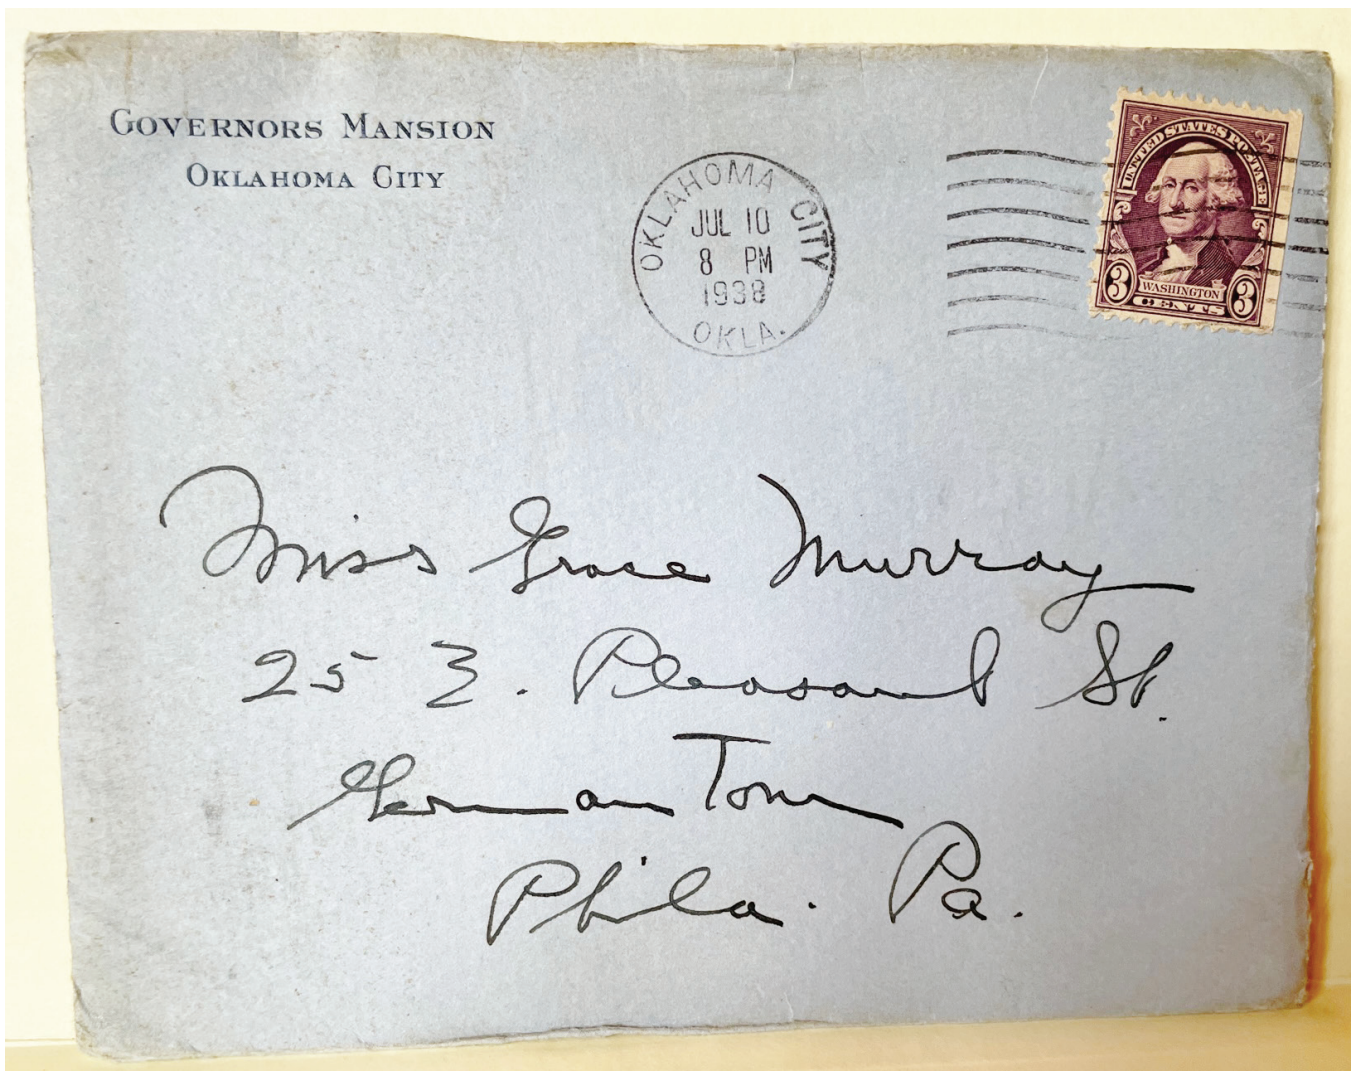 GOVERNORS MANSION
OKLAHOMA CITY
OKLAHOMA CITY
JUL 10
8 PM
1938
OKLA.
UNITED STATES POSTAGE
3 WASHINGTON 3
CENTS
Miss Grace Murray
25 E. Pleasant St.
GermanTown
Phila. Pa.